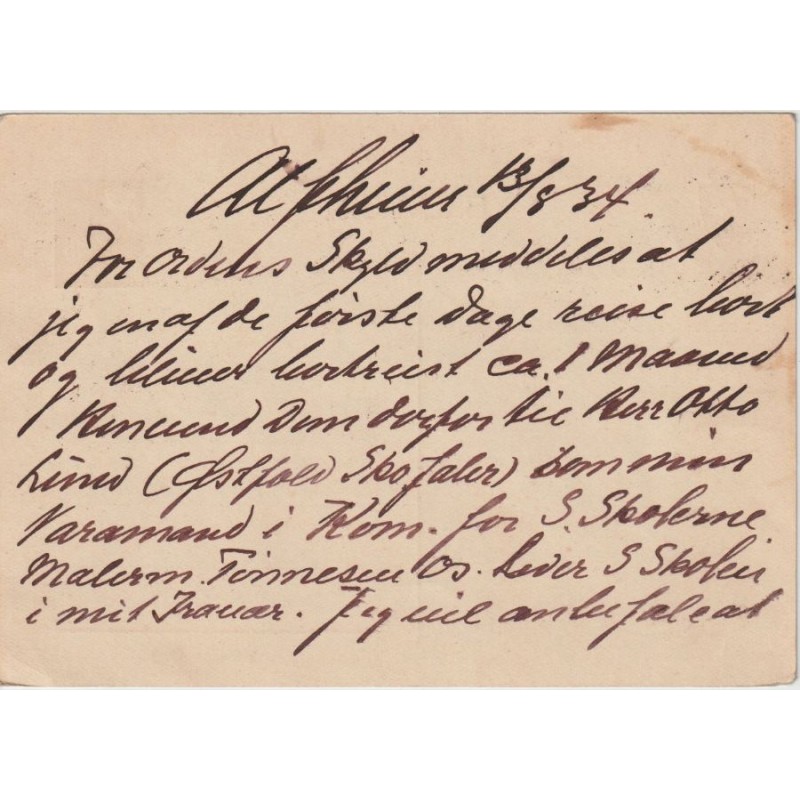 Alfheim 13/8 34.
For Ordens Skyld meddeles at
jeg en af de første Dage reise bort
og bliver bortreist ca. 1 Maaned
Dem derfor til Herr Otto
Lund (Østfold Skofaler) som min
Varamand i Kom. for S. Skolerne
Malerm. Tønnesen Os. leder S Skolen
i mit Fravær. Jeg vil anbefale at